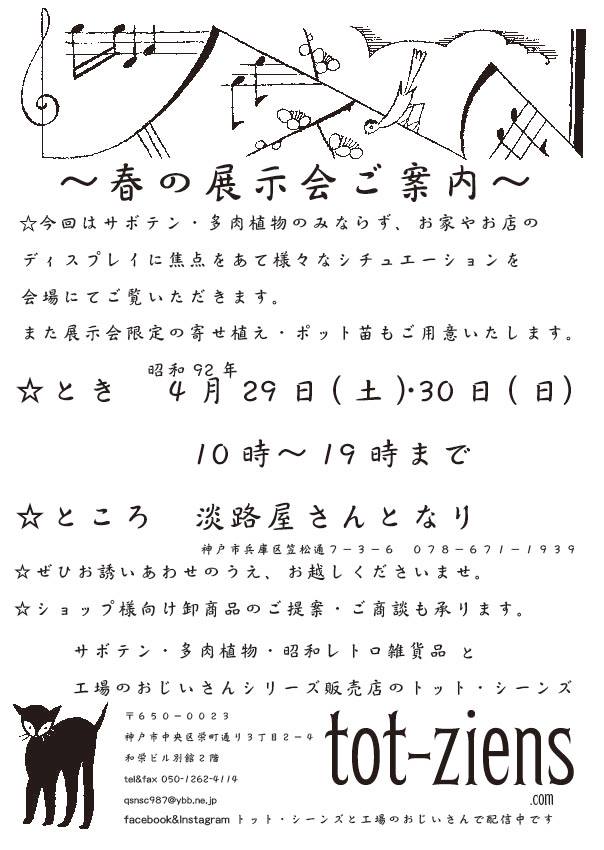 ～春の展示会ご案内～
☆今回はサボテン・多肉植物のみならず、お家やお店の
ディスプレイに焦点をあて様々なシチュエーションを
会場にてご覧いただきます。
また展示会限定の寄せ植え・ポット苗もご用意いたします。
昭和92年
☆とき 4月29日(土)・30日(日)
10時～19時まで
☆ところ 淡路屋さんとなり
神戸市兵庫区笠松通7－3－6 078－671－1939
☆ぜひお誘いあわせのうえ、お越しくださいませ。
☆ショップ様向け卸商品のご提案・ご商談も承ります。
サボテン・多肉植物・昭和レトロ雑貨品 と
工場のおじいさんシリーズ販売店のトット・シーンズ
〒650－0023
神戸市中央区栄町通り3丁目2－4
和栄ビル別館2階
tel&fax 050-1262-4114
qsnsc987@ybb.ne.jp
facebook&Instagram トット・シーンズと工場のおじいさんで配信中です
tot-ziens
.com